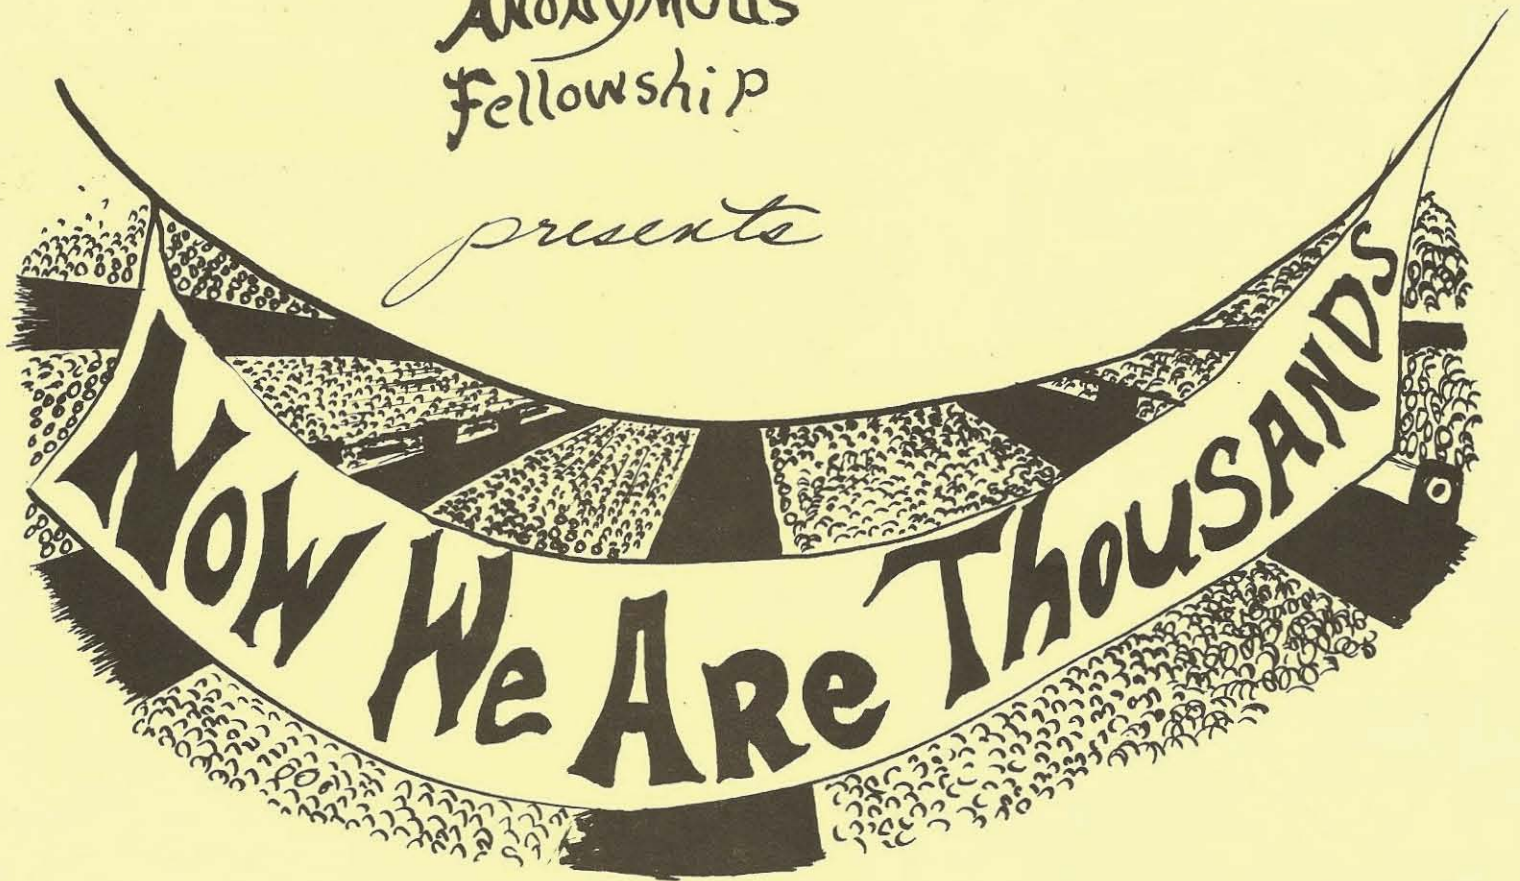 Anonymous
Fellowship
presents
Now We Are Thousands